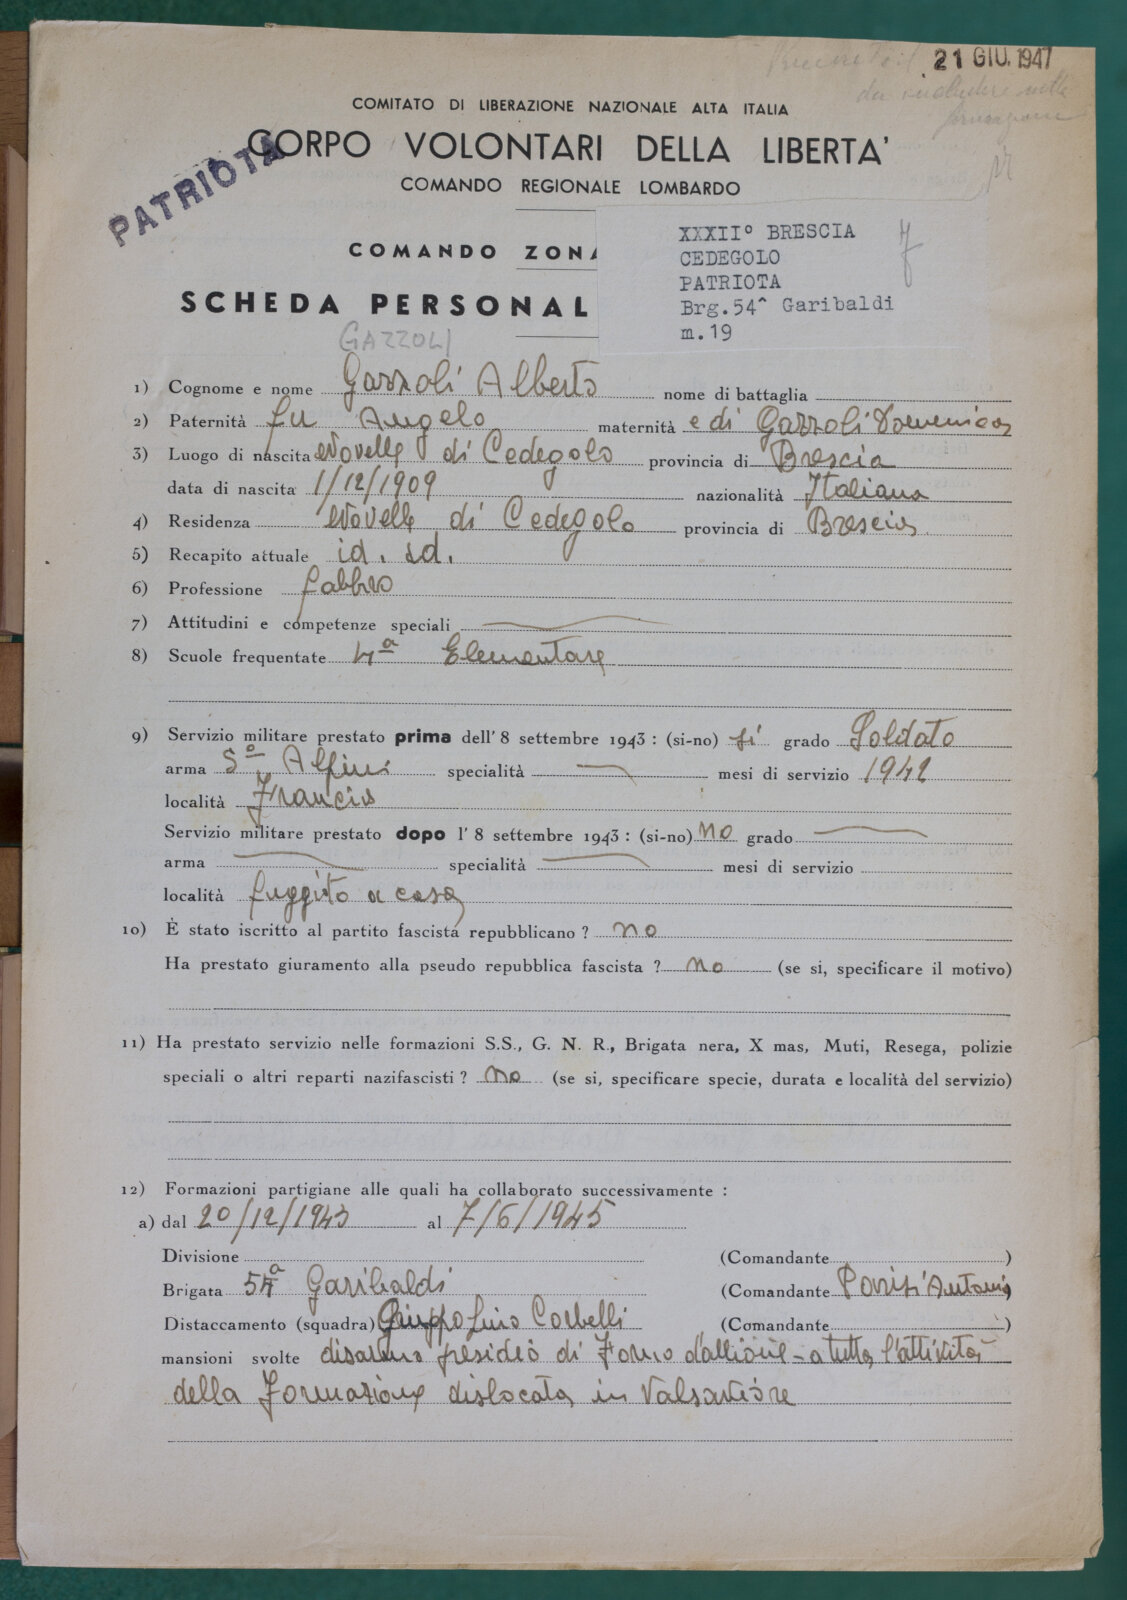 21 GIU. 1947
COMITATO DI LIBERAZIONE NAZIONALE ALTA ITALIA
CORPO VOLONTARI DELLA LIBERTA'
COMANDO REGIONALE LOMBARDO
PATRIOTA
COMANDO ZONA
SCHEDA PERSONAL
XXXII° BRESCIA
CEDEGOLO
PATRIOTA
Brg.54^ Garibaldi
m.19
GAZZOLI
1) Cognome e nome Gazzoli Alberto nome di battaglia
2) Paternità fu Angelo maternità e di Gazzoli Domenica
3) Luogo di nascita Novelle di Cedegolo provincia di Brescia
data di nascita 1/12/1909 nazionalità Italiana
4) Residenza Novelle di Cedegolo provincia di Brescia
5) Recapito attuale id. id.
6) Professione fabbro
7) Attitudini e competenze speciali
8) Scuole frequentate 4ª Elementare
9) Servizio militare prestato prima dell' 8 settembre 1943 : (si-no) si grado Soldato
arma 5° Alpini specialità mesi di servizio 1942
località Francia
Servizio militare prestato dopo l' 8 settembre 1943 : (si-no) no grado
arma specialità mesi di servizio
località fuggito a casa
10) È stato iscritto al partito fascista repubblicano ? no
Ha prestato giuramento alla pseudo repubblica fascista ? no (se si, specificare il motivo)
11) Ha prestato servizio nelle formazioni S.S., G. N. R., Brigata nera, X mas, Muti, Resega, polizie
speciali o altri reparti nazifascisti ? no (se si, specificare specie, durata e località del servizio)
12) Formazioni partigiane alle quali ha collaborato successivamente :
a) dal 20/12/1943 al 7/6/1945
Divisione (Comandante )
Brigata 54ª Garibaldi (Comandante Parisi Antonio)
Distaccamento (squadra) Gruppo Lino Corbelli (Comandante )
mansioni svolte disarmo presidio di Forno d'allione - a tutta l'attività
della Formazione dislocata in Valsaviore